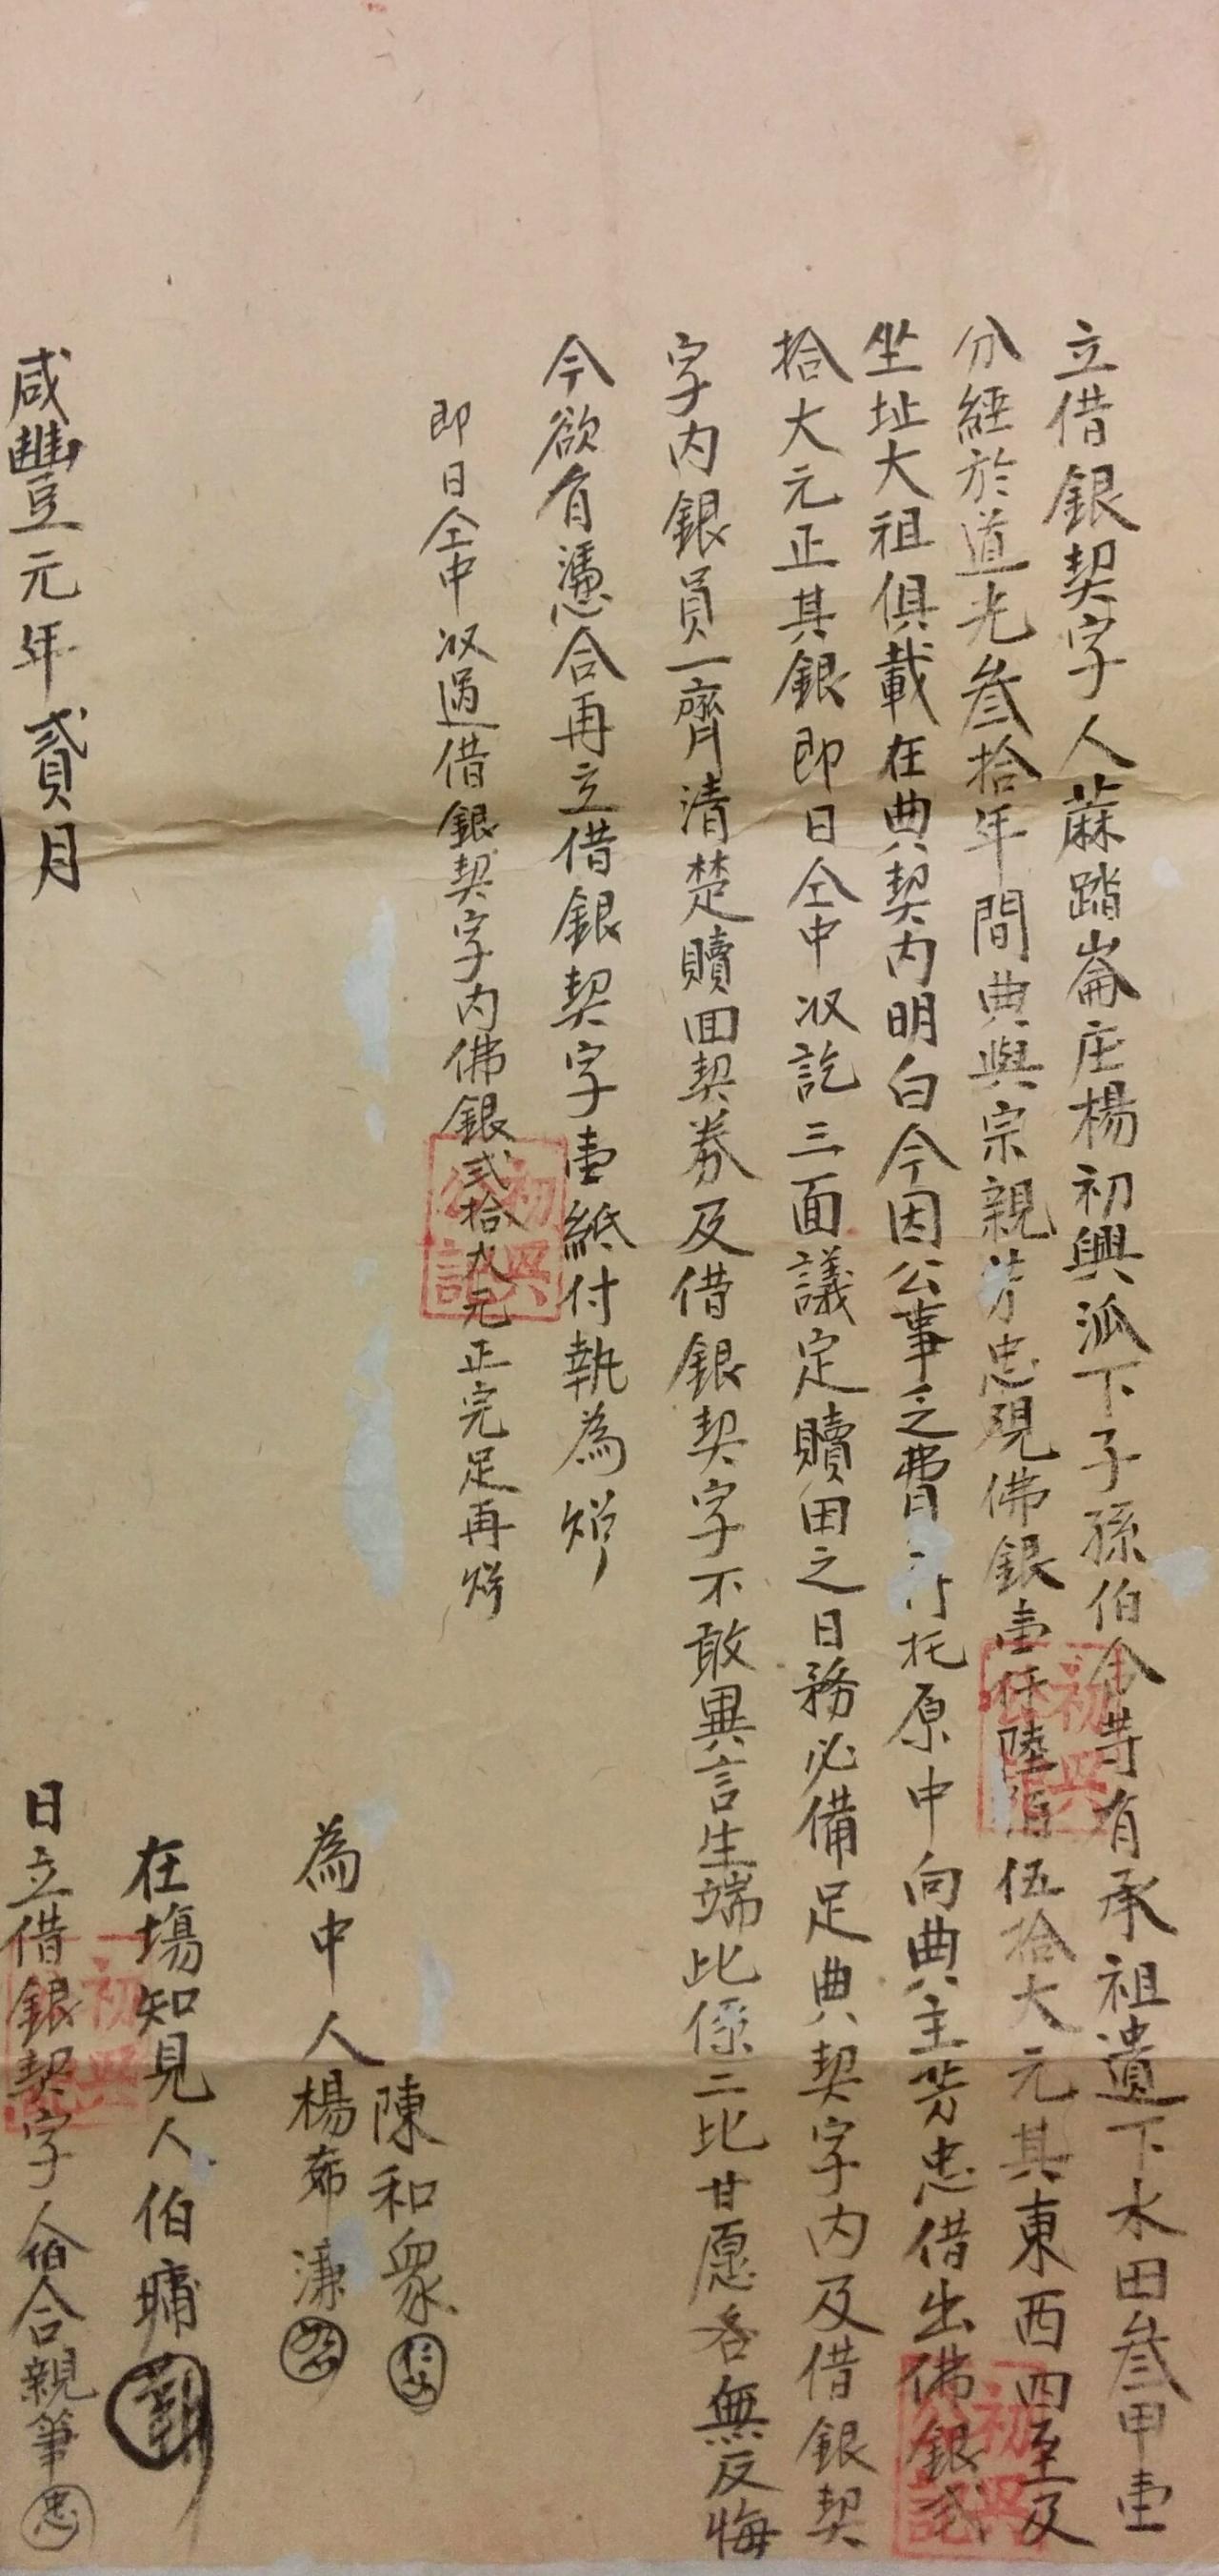 立借銀契字人蔴踏崙庄楊初興派下子孫伯合等有承祖遺下水田叁甲壹
分經於道光叁拾年間典與宗親芳忠現佛銀壹仟陸佰伍拾大元其東西四至及
坐址大祖俱載在典契內明白今因公事乏費托原中向典主芳忠借出佛銀弍
拾大元正其銀即日仝中収訖三面議定贖田之日務必備足典契字內及借銀契
字內銀員一齊清楚贖回契券及借銀契字不敢異言生端比係二比甘愿各無反悔
今欲有憑合再立借銀契字壹紙付執為炤
即日仝中収過借銀契字內佛銀弍拾大元正完足再炤
陳和衆
為中人楊茹濂
在塲知見人伯墉
咸豐元年貳月 日立借銀契字人伯合親筆忠
初興公記